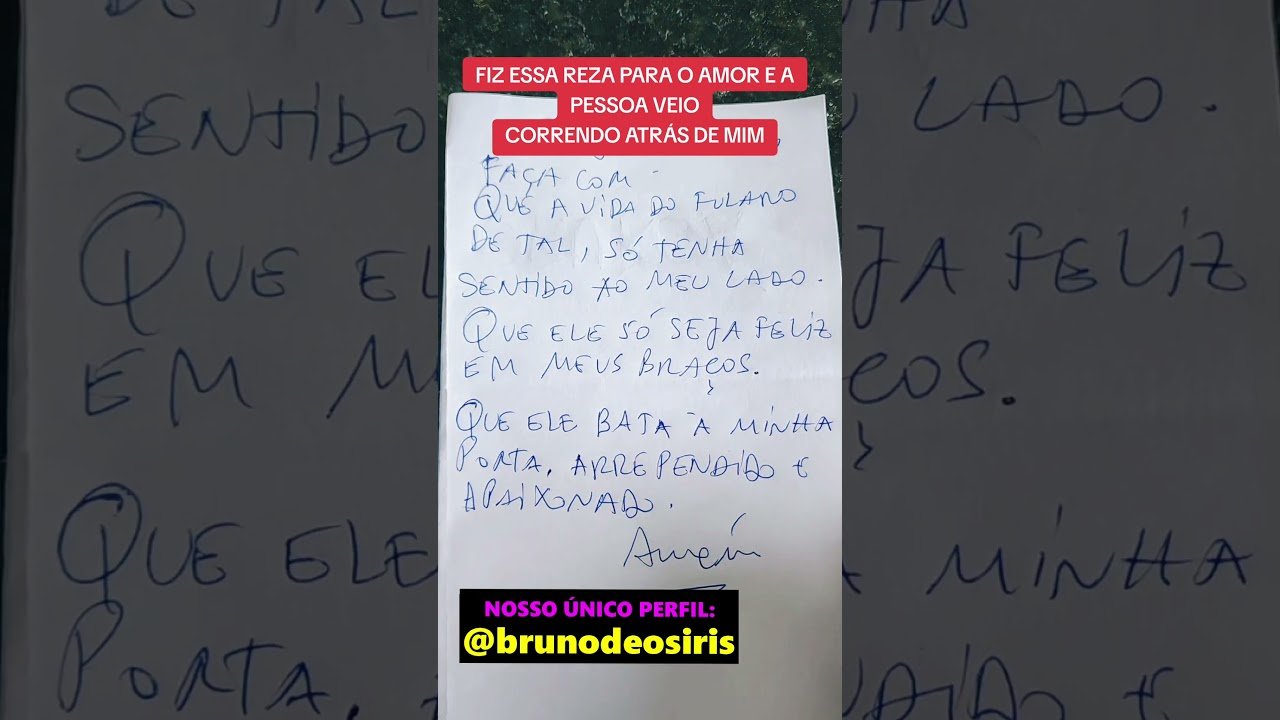 FIZ ESSA REZA PARA O AMOR E A
PESSOA VEIO
CORRENDO ATRÁS DE MIM
FAÇA COM
QUE A VIDA DO FULANO
DE TAL, SÓ TENHA
SENTIDO AO MEU LADO.
QUE ELE SÓ SEJA FELIZ
EM MEUS BRAÇOS.
QUE ELE BATA À MINHA
PORTA, ARREPENDIDO E
APAIXONADO.
Amém
NOSSO ÚNICO PERFIL:
@brunodeosiris